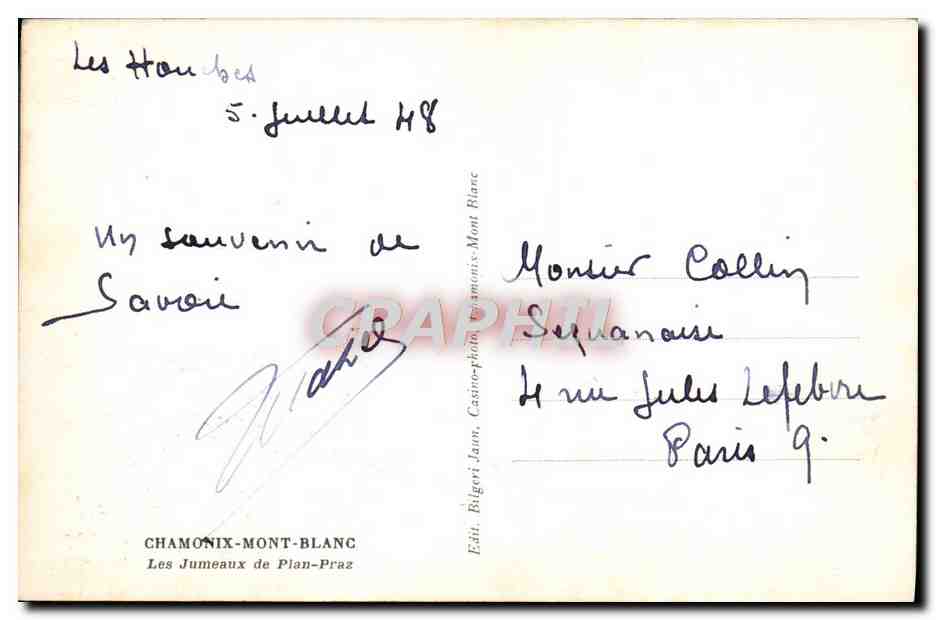 Les Houches
5. Juillet 48
Un souvenir de
Savoie
CHAMONIX-MONT-BLANC
Les Jumeaux de Plan-Praz
Edit. Bilgeri Jaun, Casino-photo, Chamonix-Mont Blanc
CRAPHIL
Monsieur Collin
Sequanaise
4 rue Jules Lefebvre
Paris 9.